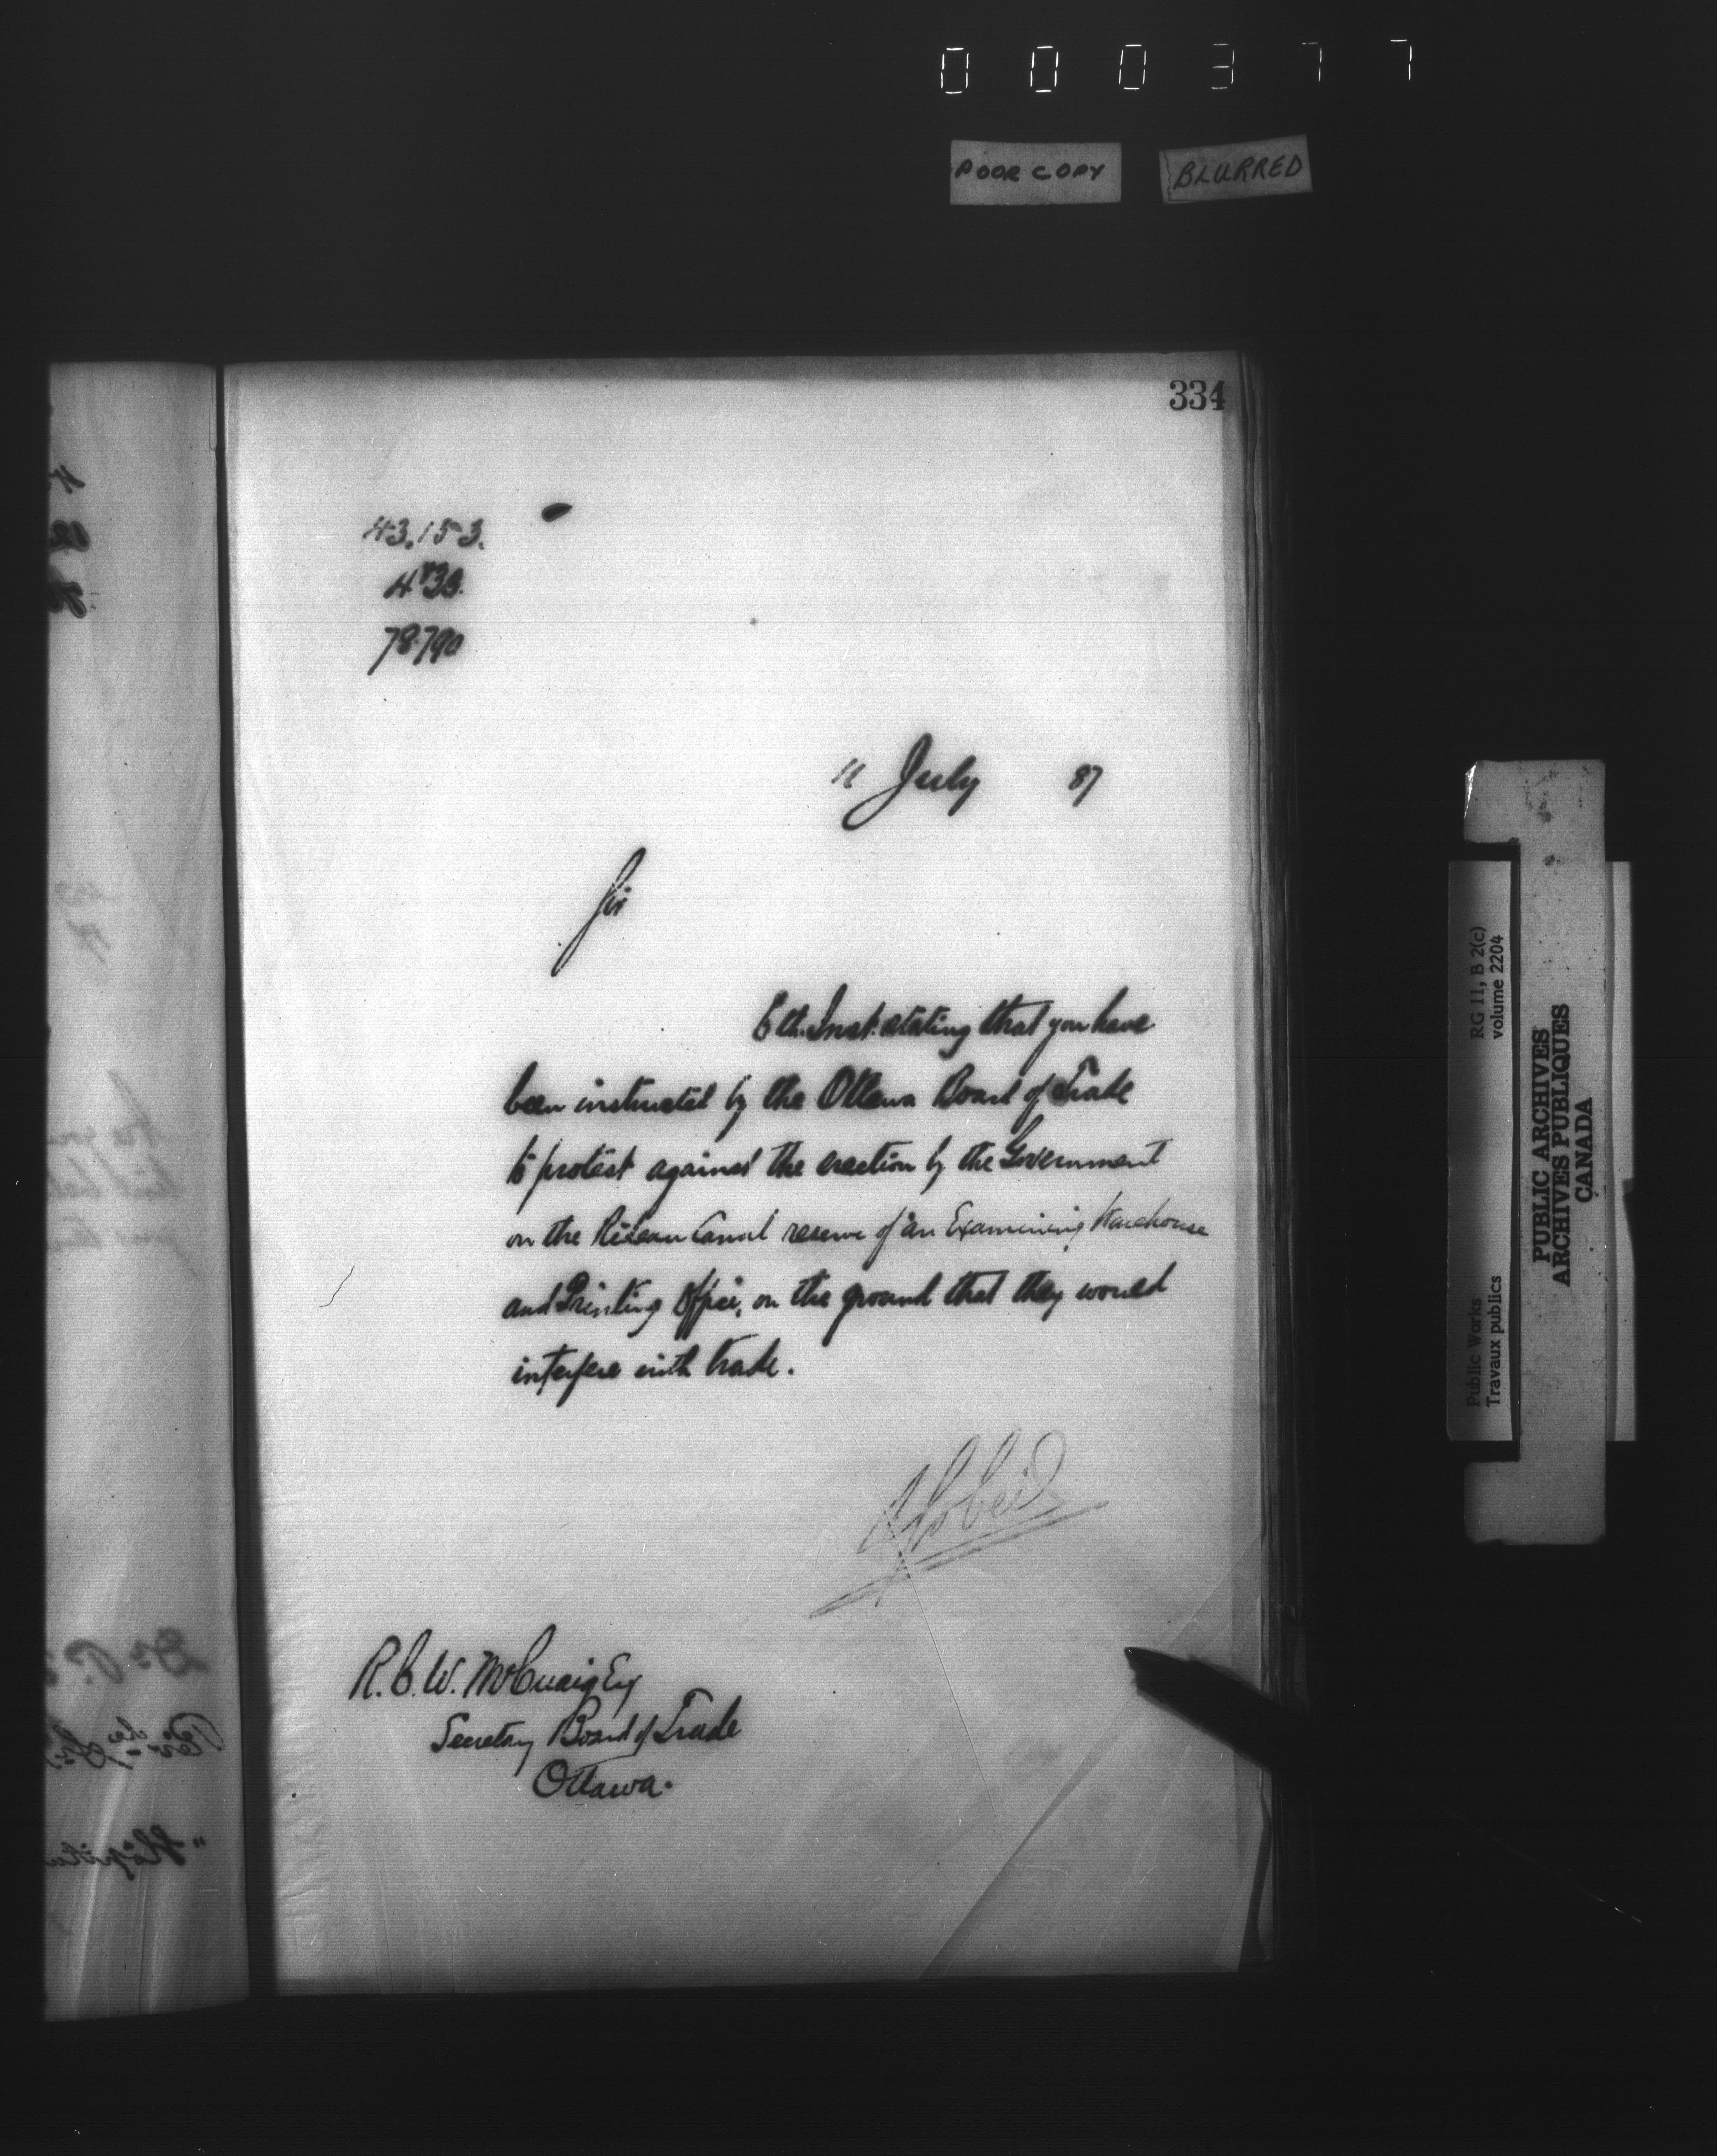 000377
POOR COPY
BLURRED
334
43.153.
78790
11 July 87
Sir
6th. Inst. stating that you have
been instructed by the Ottawa Board of Trade
to protest against the erection by the Government
on the Rideau Canal reserve of an Examining Warehouse
and Printing Office, on the ground that they would
interfere with trade.
AGobeil
R. C. W. McCuaig Esq
Secretary Board of Trade
Ottawa.
RG 11, B 2(c)
volume 2204
Public Works
Travaux publics
PUBLIC ARCHIVES
ARCHIVES PUBLIQUES
CANADA